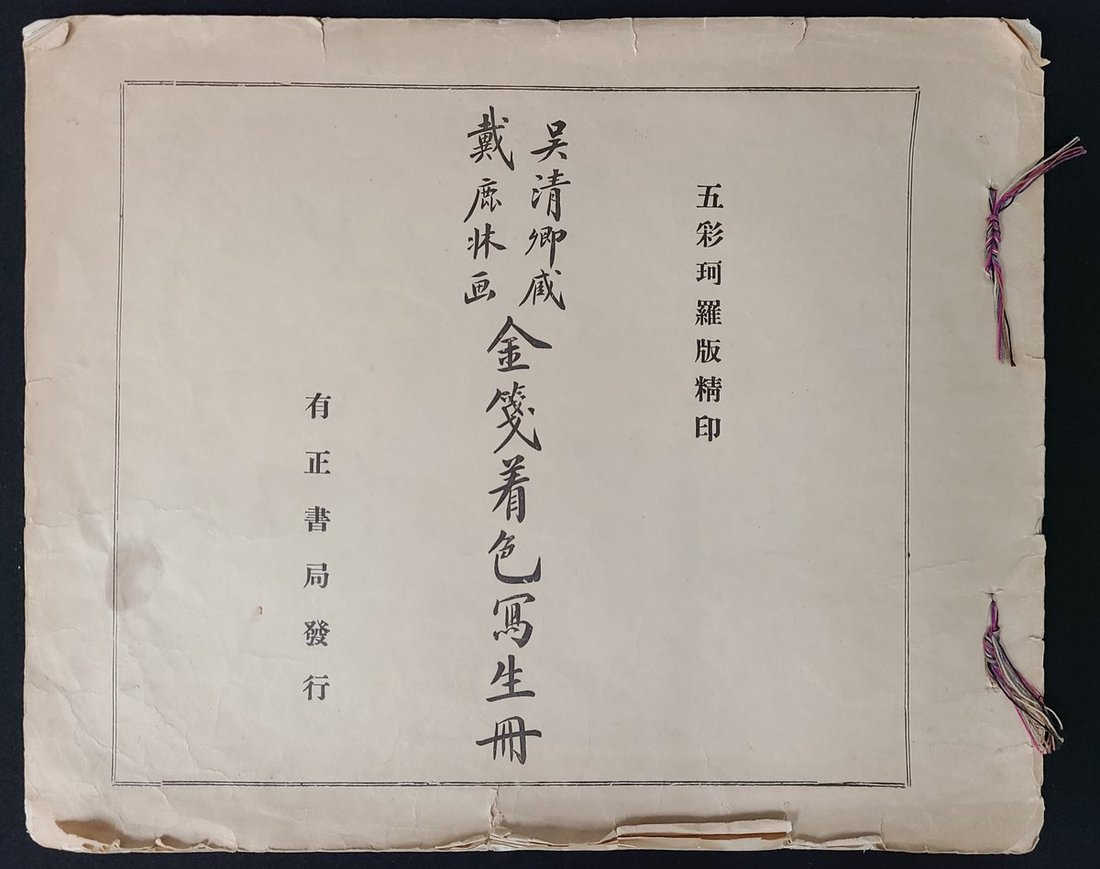 五彩珂羅版精印
吴清卿藏
戴鹿牀画
金箋着色寫生冊
有正書局發行